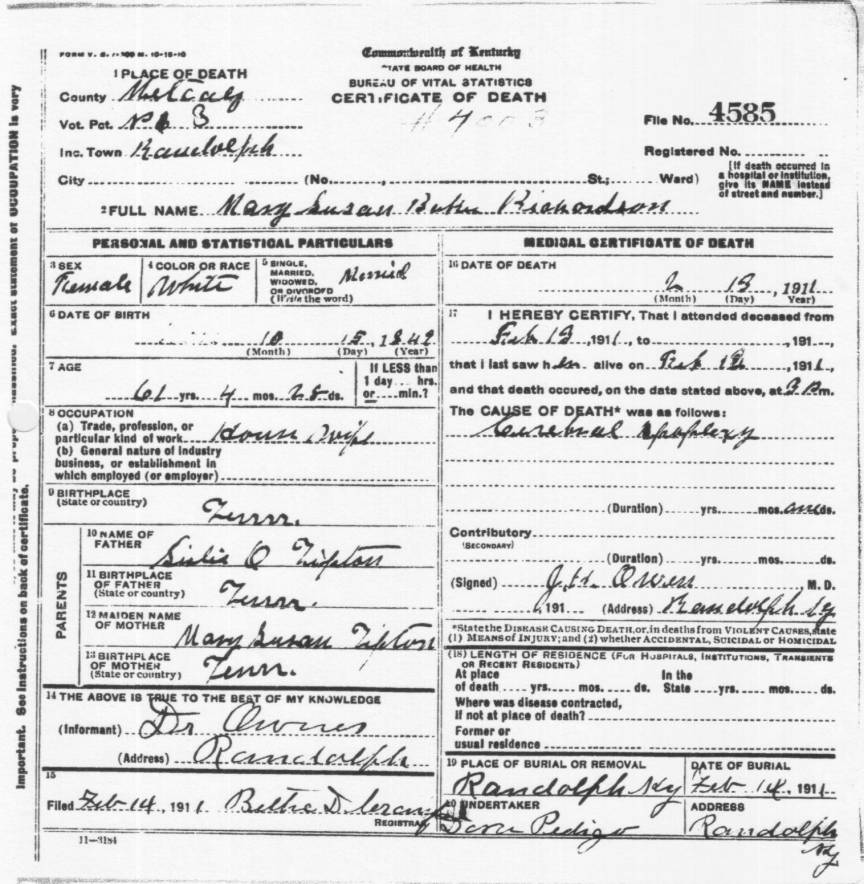 FORM V. S. 1-
Commonwealth of Kentucky
STATE BOARD OF HEALTH
BUREAU OF VITAL STATISTICS
CERTIFICATE OF DEATH
1 PLACE OF DEATH
County Metcalf
Vot. Pct. No 3
Inc. Town Randolph
File No. 4585
Registered No.
City (No. , St.; Ward)
[If death occurred in
a hospital or institution,
give its NAME instead
of street and number.]
2 FULL NAME Mary Susan Richardson
PERSONAL AND STATISTICAL PARTICULARS
3 SEX
Female
4 COLOR OR RACE
White
5 SINGLE,
MARRIED,
WIDOWED,
OR DIVORCED
(Write the word)
Married
6 DATE OF BIRTH
10 15, 1849
(Month) (Day) (Year)
7 AGE
61 yrs. 4 mos. 28 ds.
If LESS than
1 day hrs.
or min.?
8 OCCUPATION
(a) Trade, profession, or
particular kind of work House Wife
(b) General nature of industry
business, or establishment in
which employed (or employer)
9 BIRTHPLACE
(State or country)
Tenn.
PARENTS
10 NAME OF
FATHER
O Tipton
11 BIRTHPLACE
OF FATHER
(State or country)
Tenn.
12 MAIDEN NAME
OF MOTHER
Mary Susan Tipton
13 BIRTHPLACE
OF MOTHER
(State or country)
Tenn.
14 THE ABOVE IS TRUE TO THE BEST OF MY KNOWLEDGE
(Informant) Dr Owens
(Address) Randolph
15
Filed Feb 14, 1911 D.
REGISTRAR
11-3184
MEDICAL CERTIFICATE OF DEATH
16 DATE OF DEATH
2 13, 1911
(Month) (Day) Year)
17 I HEREBY CERTIFY, That I attended deceased from
Feb 13, 1911, to , 191 ,
that I last saw her alive on Feb , 1911,
and that death occured, on the date stated above, at 3 Pm.
The CAUSE OF DEATH* was as follows:
Cerebral Apoplexy
(Duration) yrs. mos. one ds.
Contributory
(SECONDARY)
(Duration) yrs. mos. ds.
(Signed) J. H. Owen M. D.
, 191 (Address) Randolph Ky
*State the DISEASE CAUSING DEATH, or, in deaths from VIOLENT CAUSES, state
(1) MEANS OF INJURY; and (2) whether ACCIDENTAL, SUICIDAL or HOMICIDAL
(18) LENGTH OF RESIDENCE (FOR HOSPITALS, INSTITUTIONS, TRANSIENTS
OR RECENT RESIDENTS)
At place In the
of death yrs. mos. ds. State yrs. mos. ds.
Where was disease contracted,
If not at place of death?
Former or
usual residence
19 PLACE OF BURIAL OR REMOVAL
Randolph Ky
DATE OF BURIAL
Feb 14, 1911
20 UNDERTAKER
Pedigo
ADDRESS
Randolph
Ky
Important. See instructions on back of certificate.
Exact statement of OCCUPATION is very